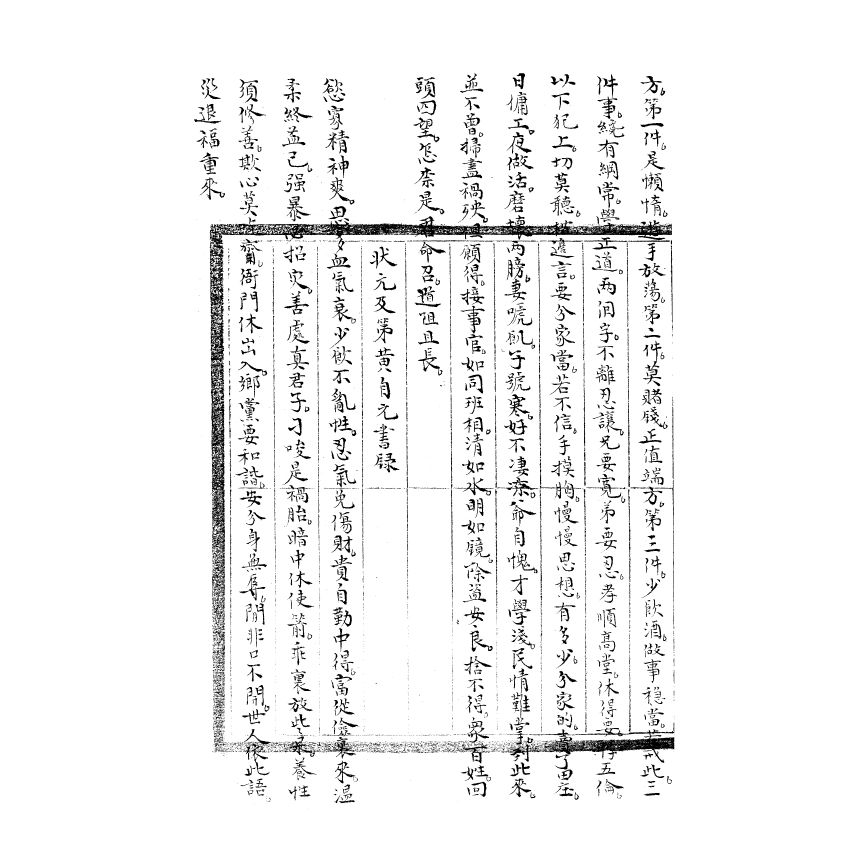 方。第一件。是懒惰。遊手放蕩。第二件。莫賭錢。正值端方。第三件。少飲酒。做事穏當。戒此三
件事。纔有綱常。學正道。两個字。不離忍讓。兄要寛。弟要忍。孝順髙堂。休得要
以下犯上。切莫聽。進言。要分家當。若不信。手摸胸。慢慢思想。有多少。分家的。賣了田庄。
日傭工。夜做活。磨壊两膀。妻啼飢。子號寒。好不凄凉。爺自愧。才學淺。民情難掌。到此來。
並不曽。掃盡禍殃。願得。接事官。如同班相。清如水。明如镜。除盗安良。捨不得。衆百姓。回
頭四望。怎柰是。君命召。道阻且長。
狀元及第黄自元書録
慾寡精神爽。思多血氣衰。少飲不亂性。忍氣免傷財。貴自勤中得。富從儉裏來。温
柔終益己。强暴必招灾。善處真君子。刁唆是禍胎。暗中休使箭。乖裏放此呆。養性
須修善。欺心莫吃齋。衙門休出入。鄉黨要和諧。安分身無辱。閒非口不開。世人依此語。
災退福重來。